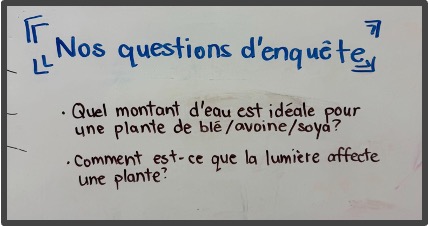 Nos questions d'enquête
· Quel montant d'eau est idéale pour
une plante de blé/avoine/soya?
· Comment est-ce que la lumière affecte
une plante?